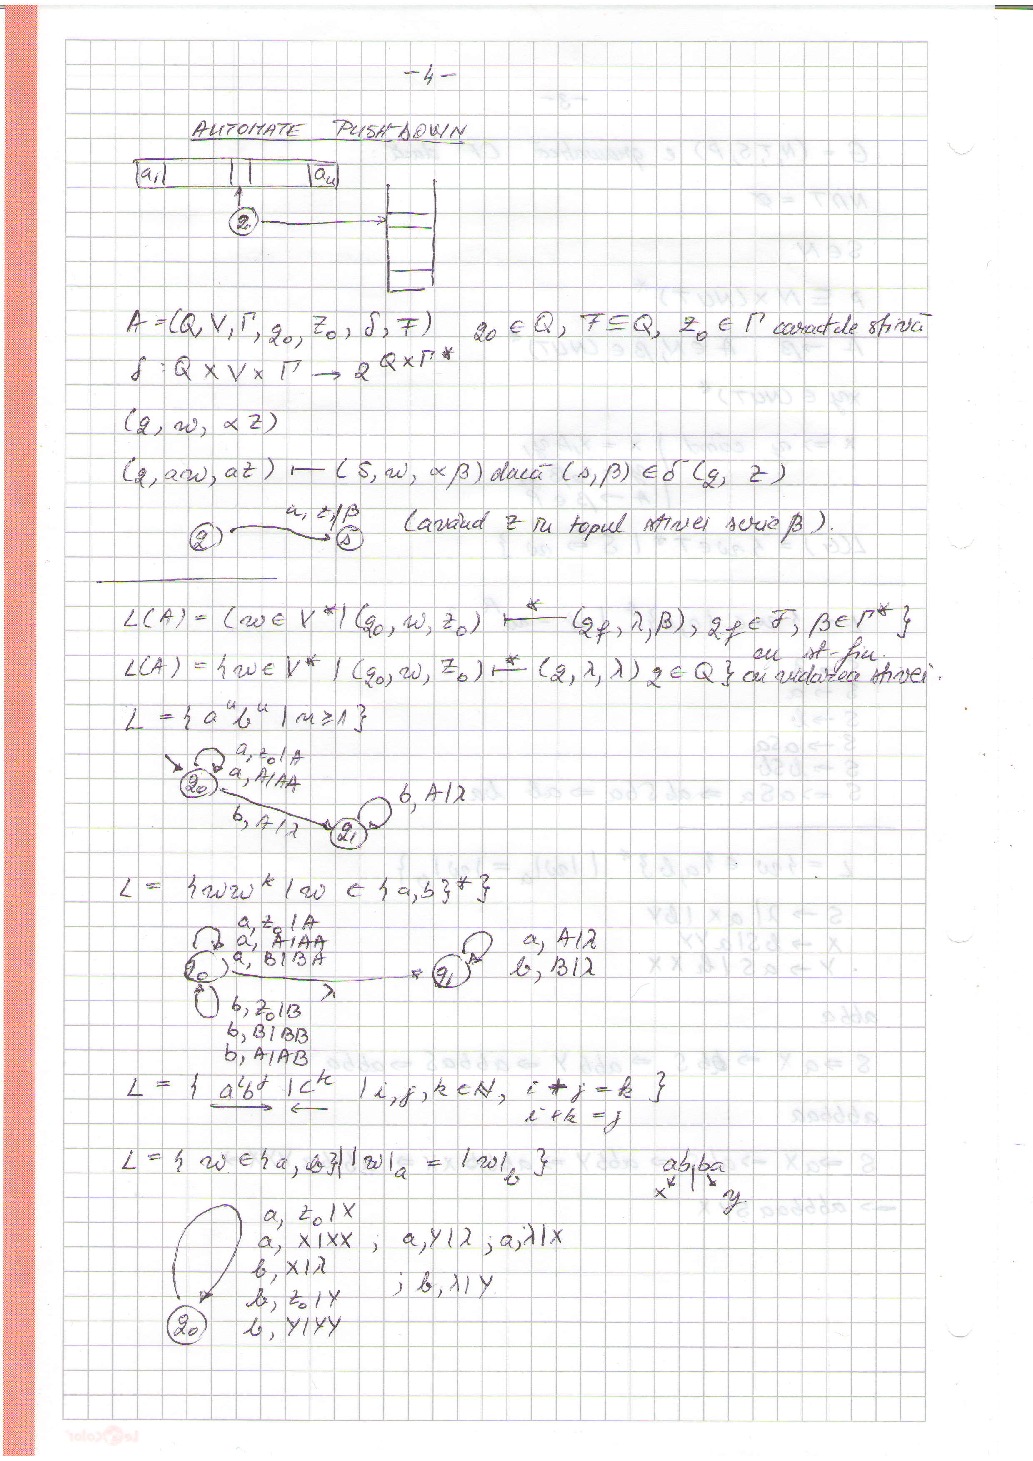 -4-
AUTOMATE PUSH-DOWN
a₁ aₙ
q
A=(Q, V, Γ, q₀, Z₀, δ, F) q₀ ∈ Q, F ⊆ Q, Z₀ ∈ Γ caract de stivă
δ : Q × V × Γ → 2^(Q×Γ*)
(q, w, αZ)
(q, aw, az) ⊢ (s, w, αβ) dacă (s, β) ∈ δ (q, z)
a, z/β
q s (având z în topul stivei scrie β).
L(A) = {w ∈ V* | (q₀, w, z₀) ⊢* (q_f, λ, β), q_f ∈ F, β ∈ Γ*}
cu st-fin.
L(A) = {w ∈ V* | (q₀, w, Z₀) ⊢* (q, λ, λ) q ∈ Q} cu vidarea stivei.
L = {aⁿbⁿ | n ≥ 1}
a, z₀/A
q₀ a, A/AA
b, A/λ
b, A/λ q₁
L = {ww^R | w ∈ {a,b}*}
a, z₀/A
a, A/AA a, A/λ
q₀ a, B/BA q₁ b, B/λ
λ
b, z₀/B
b, B/BB
b, A/AB
L = { aⁱbʲ | cᵏ | i, j, k ∈ N, i + j = k }
i + k = j
L = { w ∈ {a, b} | |w|_a = |w|_b } ab|ba
x y
a, z₀/X
a, X/XX ; a, Y/λ ; a, λ/X
b, X/λ
; b, λ/Y
b, z₀/Y
q₀ b, Y/YY